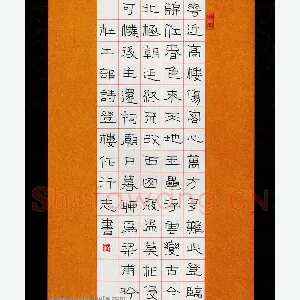 花近高樓傷客心萬方多難此登臨
錦江春色來天地玉壘浮雲變古今
北極朝廷終不改西山寇盜莫相侵
可憐後主還祠廟日暮聊為梁甫吟
杜工部詩登樓任行志書